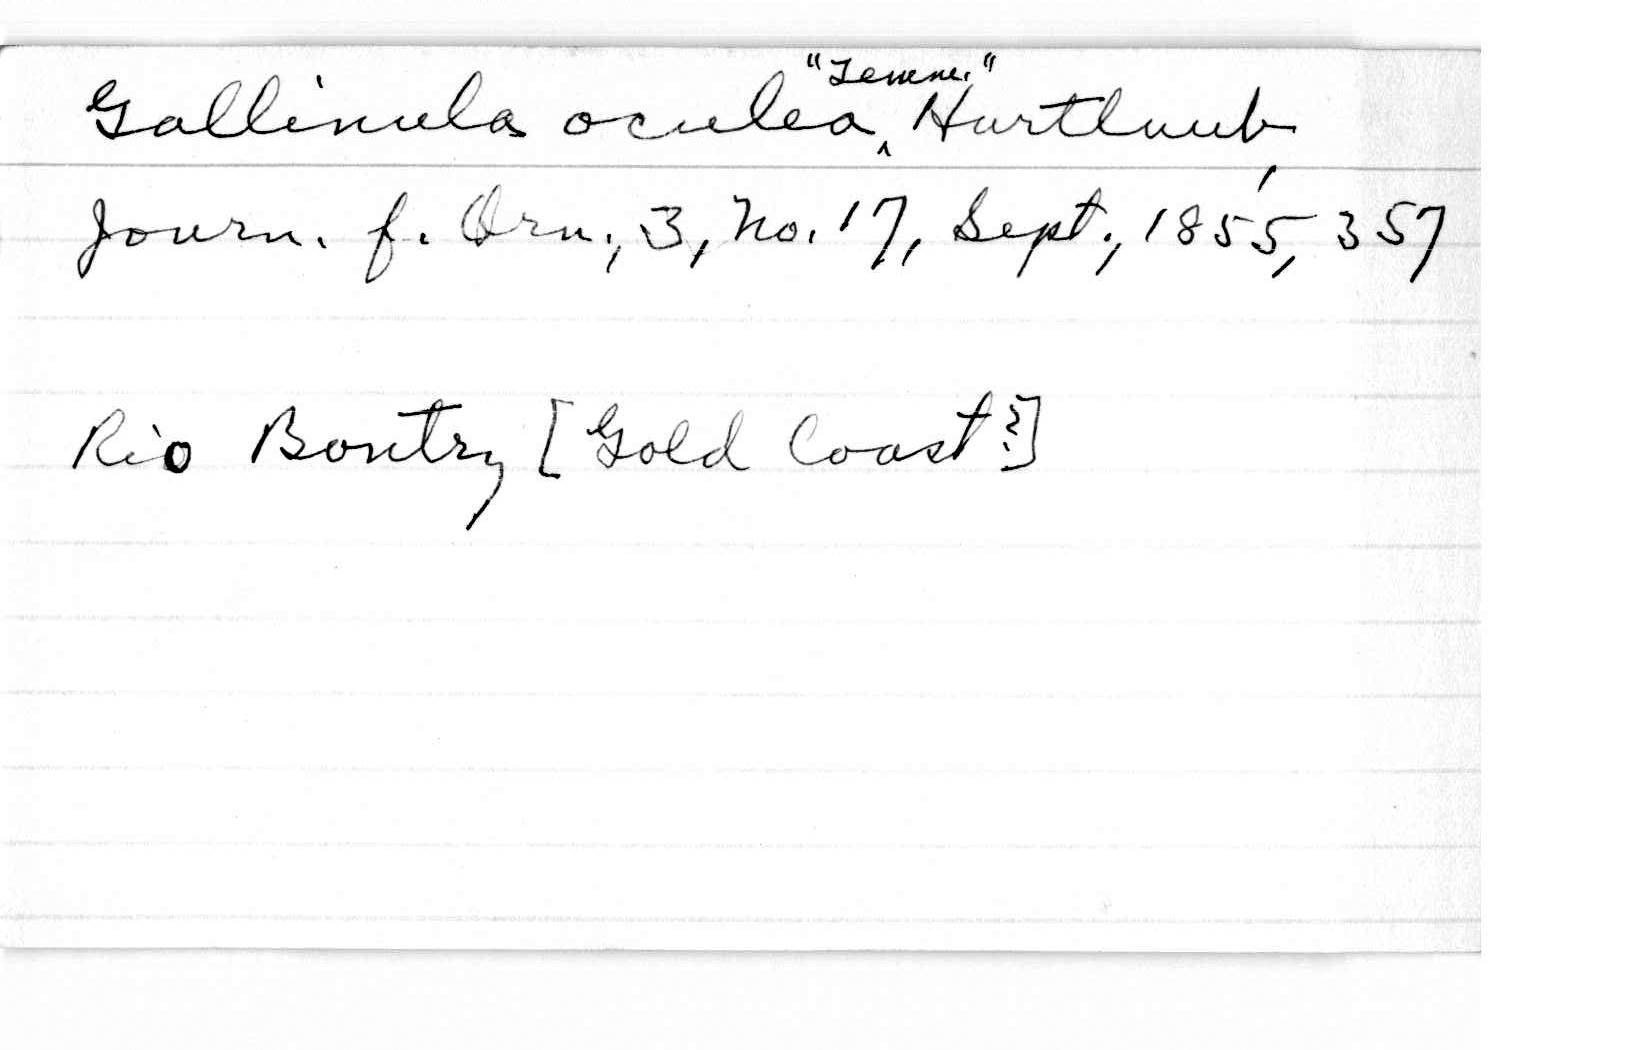 Gallinula oculea "Temm." Hartlaub
Journ. f. Orn., 3, No. 17, Sept., 1855, 357
Rio Boutry [Gold Coast?]